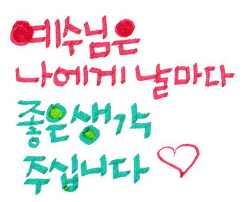 예수님은
나에게 날마다
좋은생각
주십니다